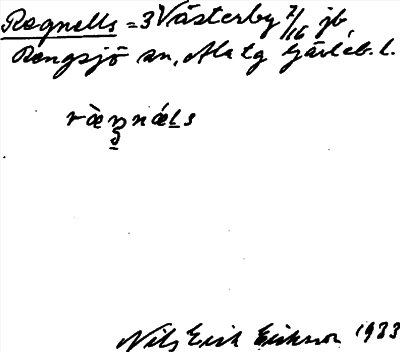 Regnells = 3 Västerby 7/16 jb
Rengsjö sn, Ala tg Gävleb. l.
ræ̀ŋnǽls
Nils Erik Erikson 1933